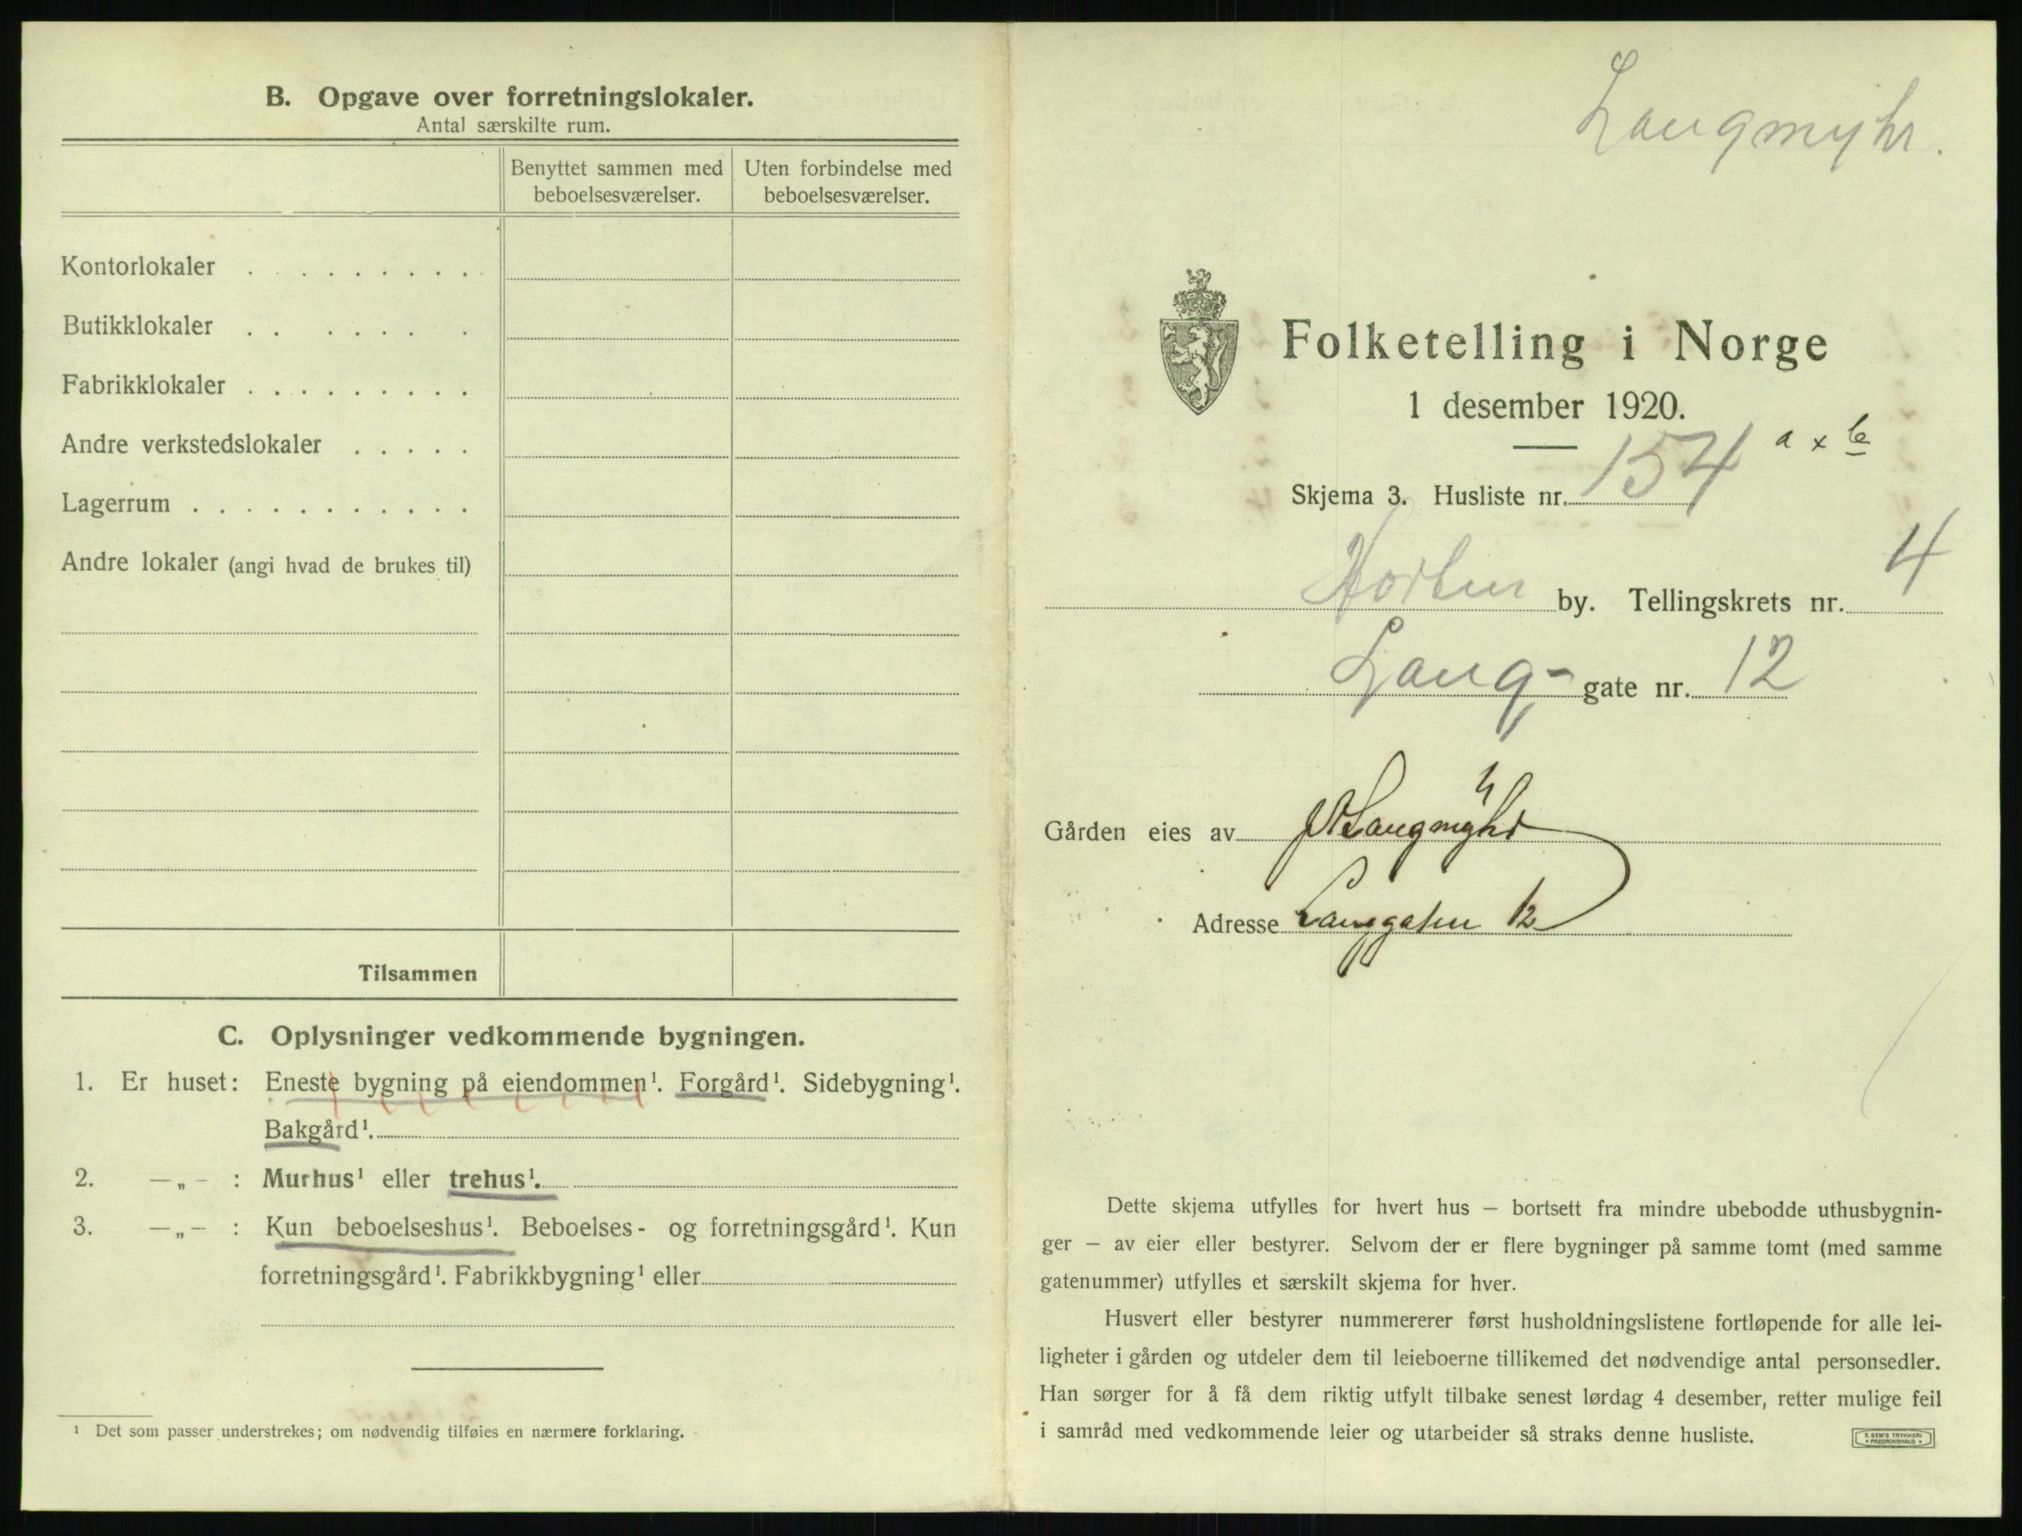 B. Opgave over forretningslokaler.
Antal særskilte rum.
Benyttet sammen med beboelsesværelser.
Uten forbindelse med beboelsesværelser.
Kontorlokaler . . . . . . . . .
Butikklokaler . . . . . . . .
Fabrikklokaler . . . . . . . . .
Andre verkstedslokaler . . . . .
Lagerrum . . . . . . . . . . .
Andre lokaler (angi hvad de brukes til)
Tilsammen
C. Oplysninger vedkommende bygningen.
1. Er huset: Eneste bygning på eiendommen¹. Forgård¹. Sidebygning¹.
Bakgård¹.
2. —„— : Murhus¹ eller trehus¹.
3. —„— : Kun beboelseshus¹. Beboelses- og forretningsgård¹. Kun
forretningsgård¹. Fabrikkbygning¹ eller
¹ Det som passer understrekes; om nødvendig tilføies en nærmere forklaring.
Langmyhr.
Folketelling i Norge
1 desember 1920.
Skjema 3. Husliste nr. 154 a x b
Horten by. Tellingskrets nr. 4
Lang- gate nr. 12
Gården eies av Langmyhr
Adresse Langgaten 12
Dette skjema utfylles for hvert hus — bortsett fra mindre ubebodde uthusbygnin-
ger — av eier eller bestyrer. Selvom der er flere bygninger på samme tomt (med samme
gatenummer) utfylles et særskilt skjema for hver.
Husvert eller bestyrer nummererer først husholdningslistene fortløpende for alle lei-
ligheter i gården og utdeler dem til leieboerne tillikemed det nødvendige antal personsedler.
Han sørger for å få dem riktig utfylt tilbake senest lørdag 4 desember, retter mulige feil
i samråd med vedkommende leier og utarbeider så straks denne husliste.
E. SEM'S TRYKKERI
• FREDRIKSHALD •